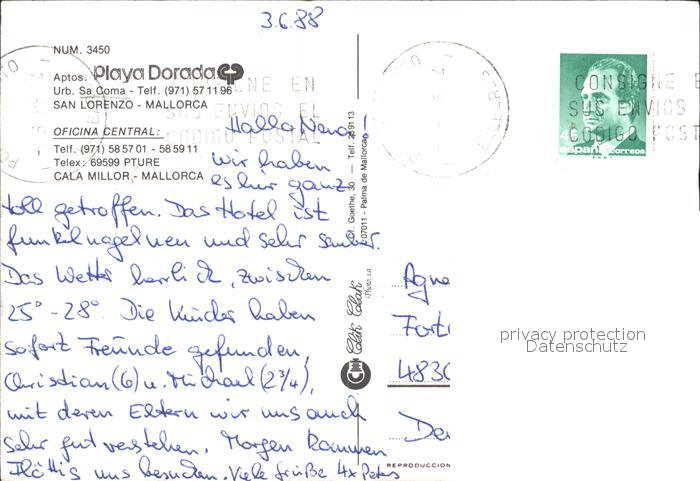 3.6.88
NUM. 3450
Aptos. Playa Dorada
Urb. Sa Coma - Telf. (971) 57 11 96
SAN LORENZO - MALLORCA
OFICINA CENTRAL:
Telf. (971) 58 57 01 - 58 59 11
Telex: 69599 PTURE
CALA MILLOR - MALLORCA
CONSIGNE EN
SUS ENVIOS EL
CODIGO POSTAL
Hallo
wir haben
es hier ganz
toll getroffen. Das Hotel ist
funkelnagelneu und sehr sauber.
Das Wetter herrlich, zwischen
25° - 28°. Die Kinder haben
sofort Freunde gefunden,
Christian (6) u. Michael (2 3/4),
mit deren Eltern wir uns auch
sehr gut verstehen. Morgen kommen
uns besuchen. Viele Grüße 4x Peters
Goethe, 30 - Telf. 289113
07011 - Palma de Mallorca
Clik Clak
Photo, s.a.
CONSIGNE E
SUS ENVIOS
CODIGO POSTA
españa correos
Agne
Fort
4830
De
privacy protection
Datenschutz
REPRODUCCION